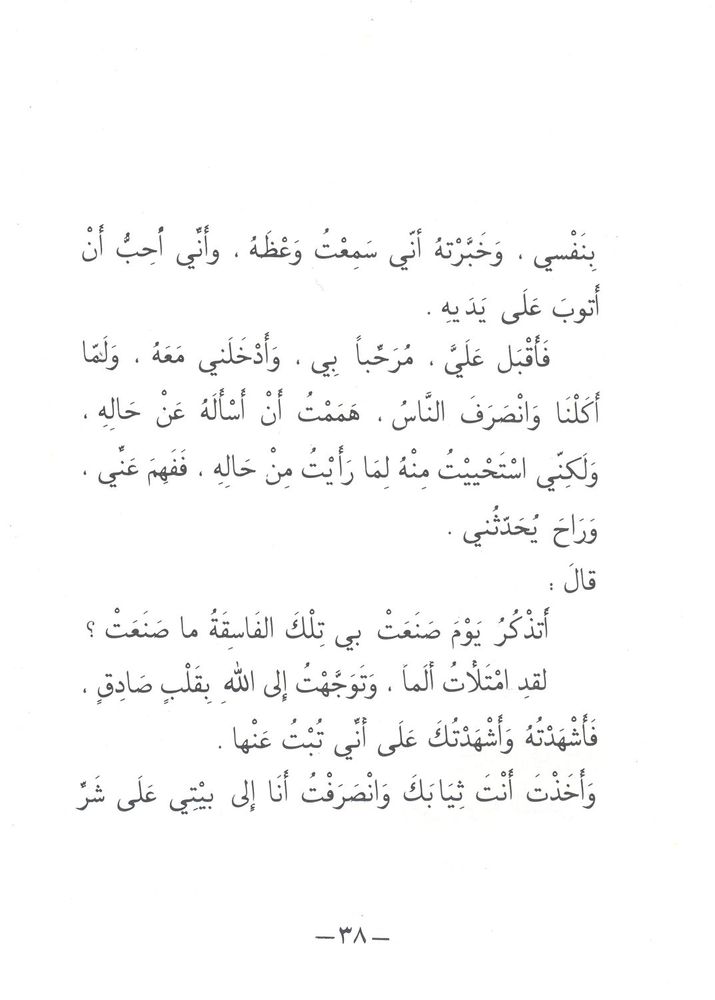 بِنَفْسي ، وَخَبَّرْتهُ أنّي سَمِعْتُ وَعْظَهُ ، وأَنِّي أُحِبُّ أَنْ
أَتوبَ عَلَى يَدَيهِ .
فَأَقْبَل عَلَيَّ ، مُرَحِّباً بِي ، وَأَدْخَلَني مَعَهُ ، وَلَمّا
أكَلْنَا وَانْصَرَفَ النَّاسُ ، هَمَمْتُ أَنْ أَسْأَلَهُ عَنْ حَالِهِ ،
وَلَكِنّي اسْتَحْيَيْتُ مِنْهُ لِمَا رَأَيْتُ مِنْ حَالِهِ ، فَفَهِمَ عَنِّي ،
وَرَاحَ يُحَدّثُني .
قالَ :
أَتذْكُرُ يَوْمَ صَنَعَتْ بي تِلْكَ الفَاسِقَةُ ما صَنَعَتْ ؟
لقدِ امْتَلأْتُ أَلَماً ، وَتَوَجَّهْتُ إلى اللهِ بِقَلْبٍ صَادِقٍ ،
فَأَشْهَدْتُهُ وَأَشْهَدْتُكَ عَلَى أَنّي تُبْتُ عَنْها .
وَأَخَذْتَ أَنْتَ ثِيَابَكَ وَانْصَرَفْتُ أَنَا إلى بيْتِي عَلَى شَرِّ
– ٣٨ –